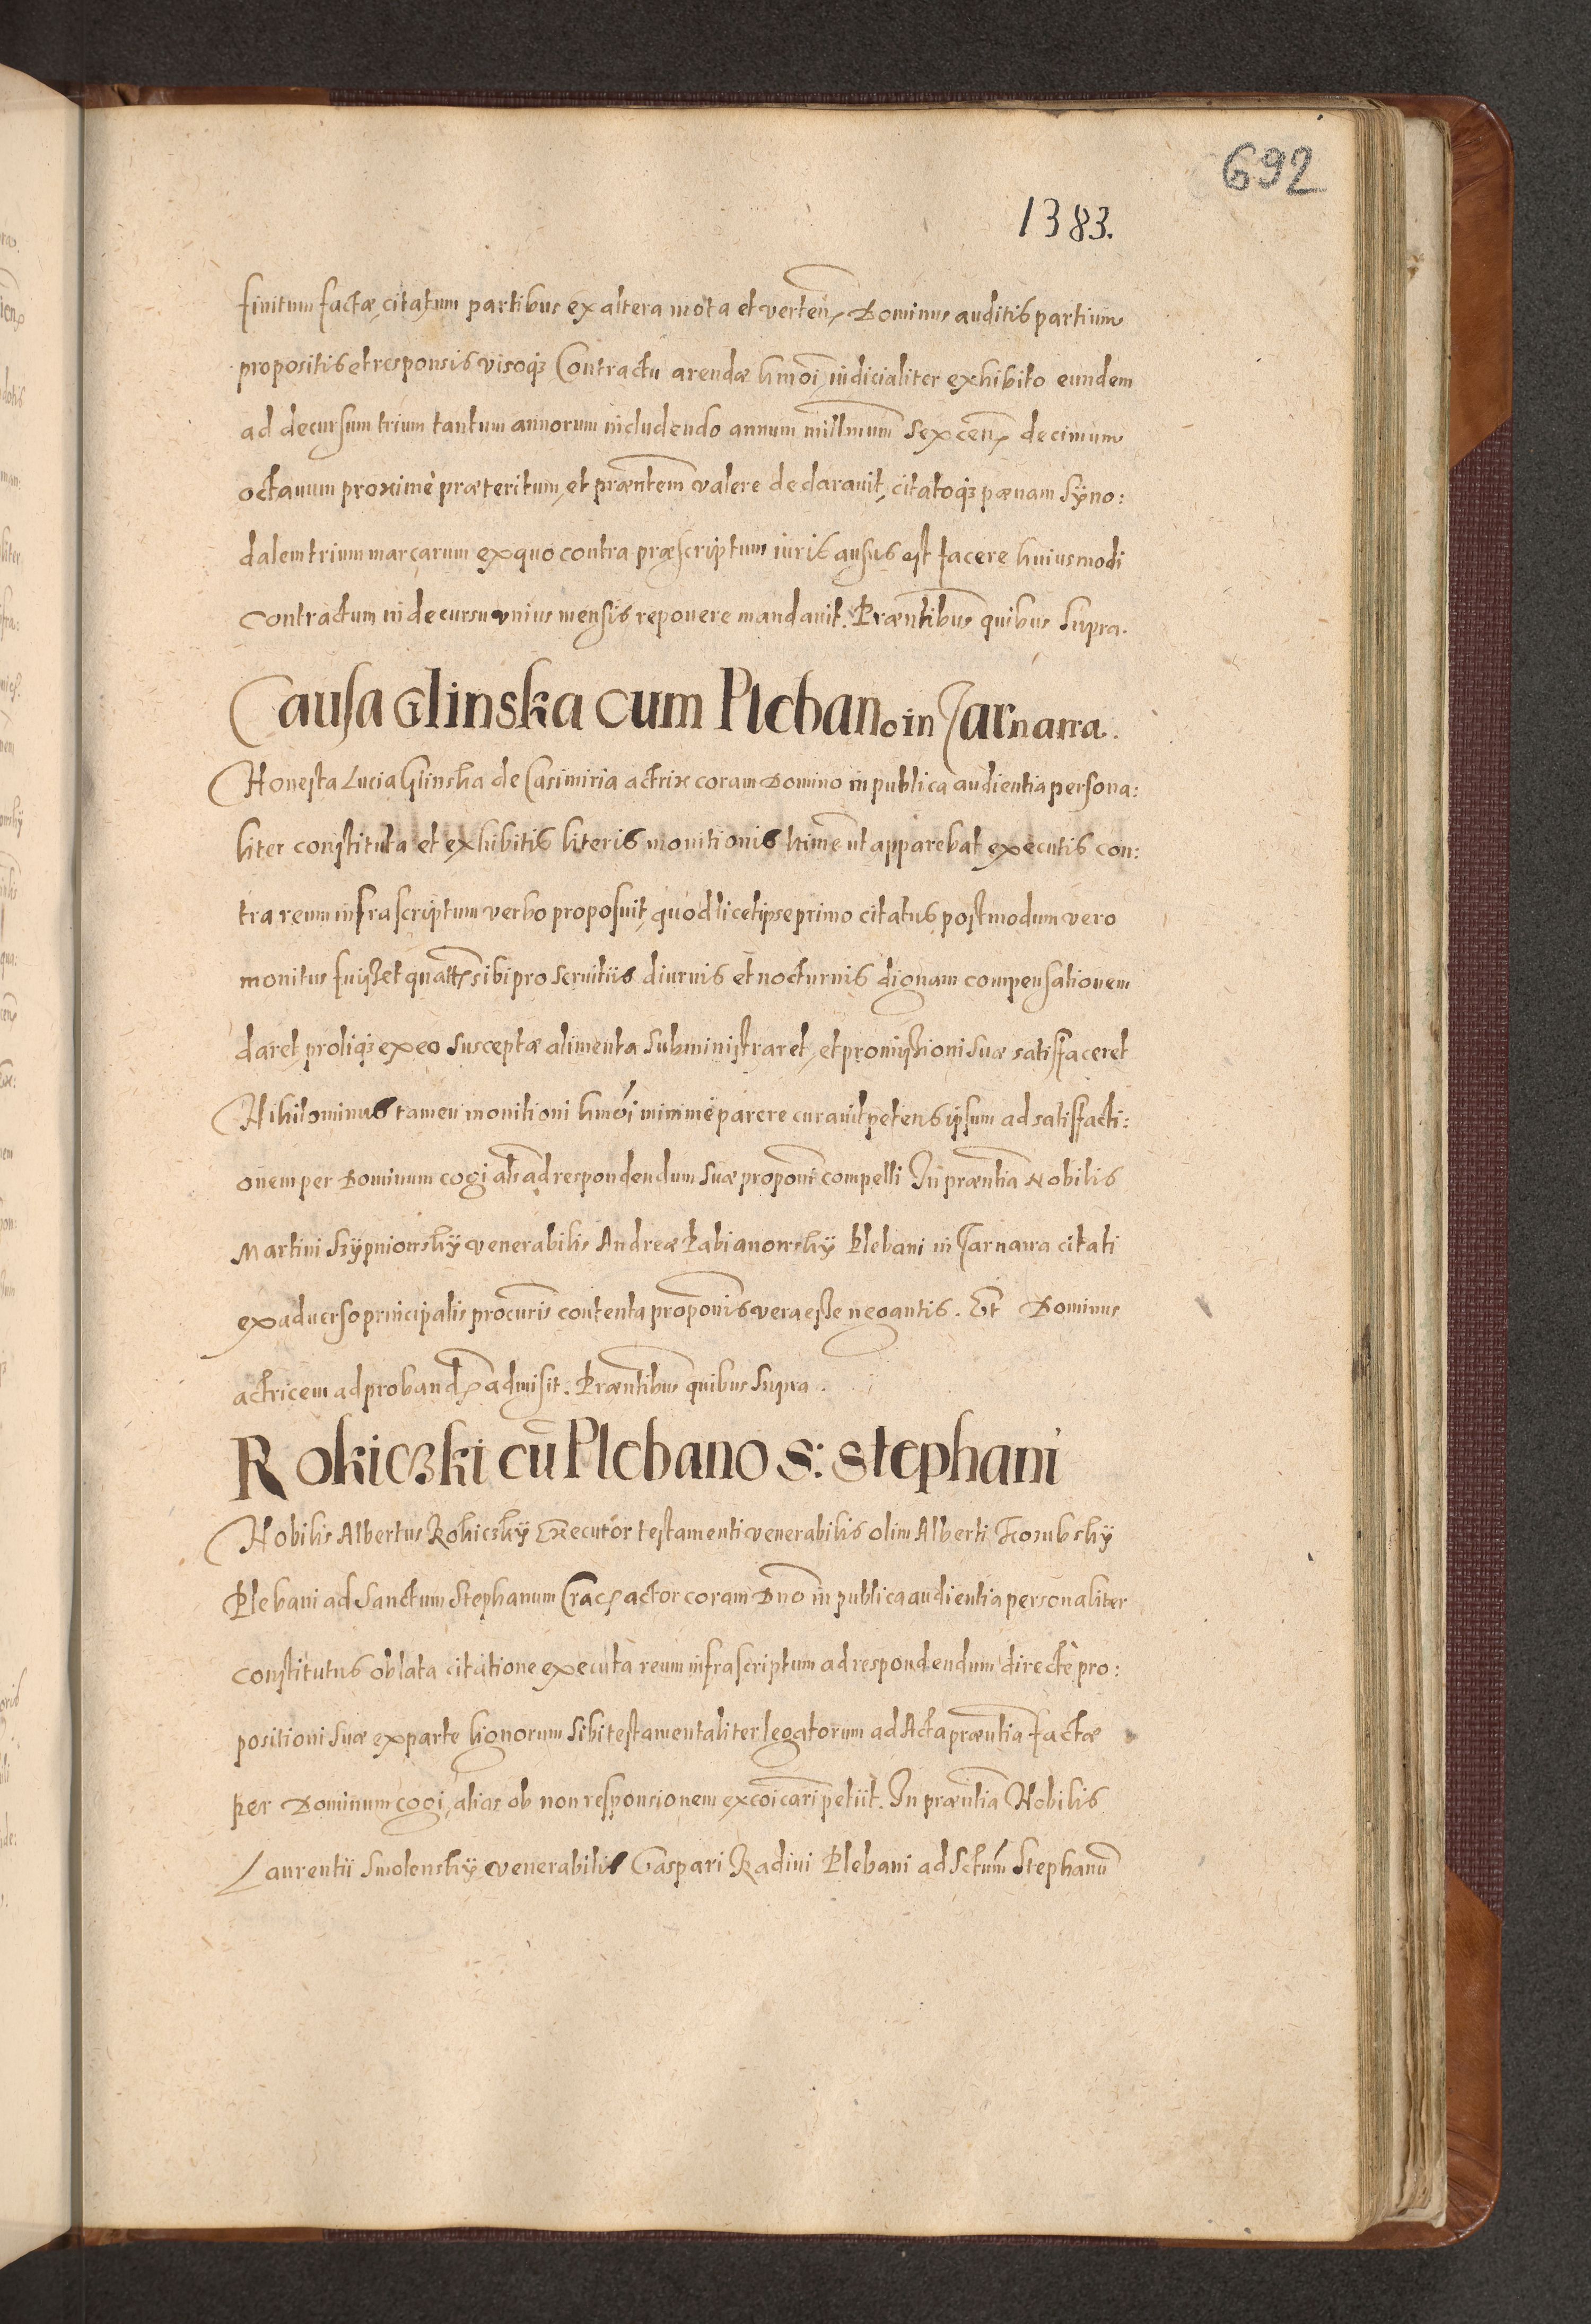 692
1383.
finitum factæ, citatum partibus ex altera mota et verten̄, Dominus auditis partium
propositis et responsis visoq₃ Contractu arendæ hmōi, iudicialiter exhibito eundem
ad decursum trium tantum annorum includendo annum millmum̄ Sexcen̄, decimum
octauum proximè præteritum, et præntem̄ valere declarauit, citatoq₃ pænam Sÿno:
dalem trium marcarum ex quo contra præscriptum iuris ausus est facere huiusmodi
contractum in decursu vnius mensis reponere mandauit. Præntibus̄ quibus Supra.
Causa Glinska cum Plebano in Czarnawa.
Honesta Lucia Glinska de Casimiria actrix coram Domino in publica audientia persona:
liter constituta et exhibitis literis monitionis ltimē ut apparebat executis con:
tra reum infrascriptum verbo proposuit, quod licet ipse primo citatus postmodum vero
monitus fuisset quatt̄, sibi pro servitiis diurnis et nocturnis dignam compensationem
daret, proliq₃ ex eo susceptæ alimenta subministraret, et promissioni suæ satisfaceret
Nihilominus tamen monitioni hmōi minimè parere curauit petens ipsum ad satisfacti:
onem per Dominum cogi als̄ ad respondendum suæ proponi̅ compelli In præntia̅ Nobilis
Martini Szÿpniowskÿ venerabilis Andreæ Pabianowskÿ Plebani in Czarnawa citati
ex aduerso principalis procuris̄ contenta proponis̄ vera esse negantis. Et Dominus
actricem ad proband̄, admisit. Præntibus̄ quibus Supra.
Rokiczki cū Plebano S: Stephani
Nobilis Albertus Rokiczkÿ Executor testamenti venerabilis olim Alberti Kozubskÿ
Plebani ad Sanctum Stephanum Crac, actor coram Dno̅ in publica audientia personaliter
constitutus oblata citatione executa reum infrascriptum ad respondendum directè pro:
positioni suæ ex parte lignorum sibi testamentaliter legatorum ad Acta præntia̅ factæ
per Dominum cogi, alias ob non responsionem excoicari̅ petiit. In præntia̅ Nobilis
Laurentii Smolenskÿ venerabilis Gaspari Radini Plebani ad Sctum̄ Stephanū